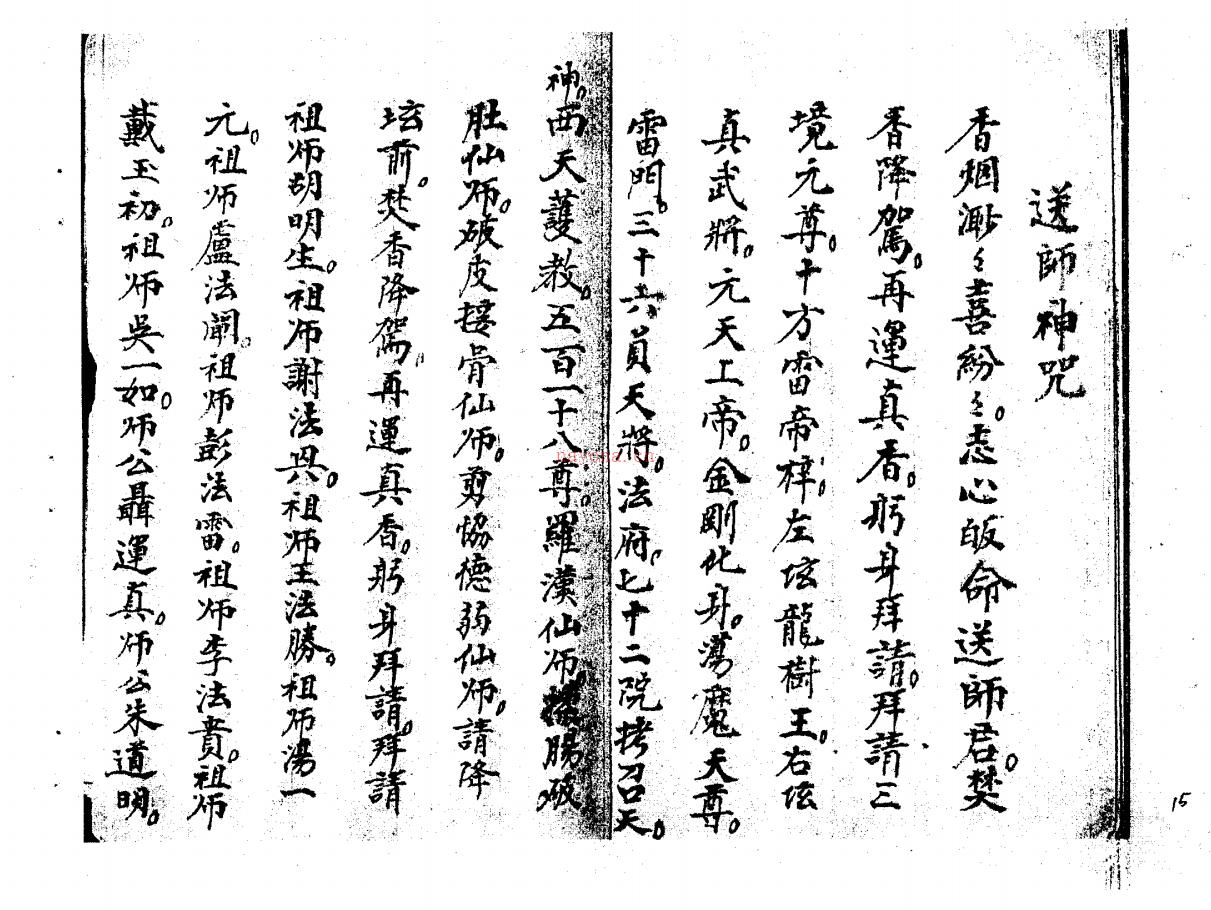 送師神咒
香烟渺々喜紛々。志心皈命送師君。焚
香降駕。再運真香。躬身拜請。拜請三
境元尊。十方雷帝梓。左坛龍樹王。右坛
真武將。元天上帝。金剛化身。蕩魔天尊。
雷門。三十六員天將。法府。七十二院拷召天。
神。西天護教。五百一十八尊。羅漢仙师腸破
肚仙师。破皮接骨仙师。剪恊德弱仙师。請降
坛前。焚香降駕。再運真香。躬身拜請。拜請
祖师胡明生。祖师謝法興。祖师王法勝。祖师湯一
元。祖师盧法闡。祖师彭法雷。祖师李法貴。祖师
戴玉初。祖师吳一如。师公聶運真。师公朱道明。
15